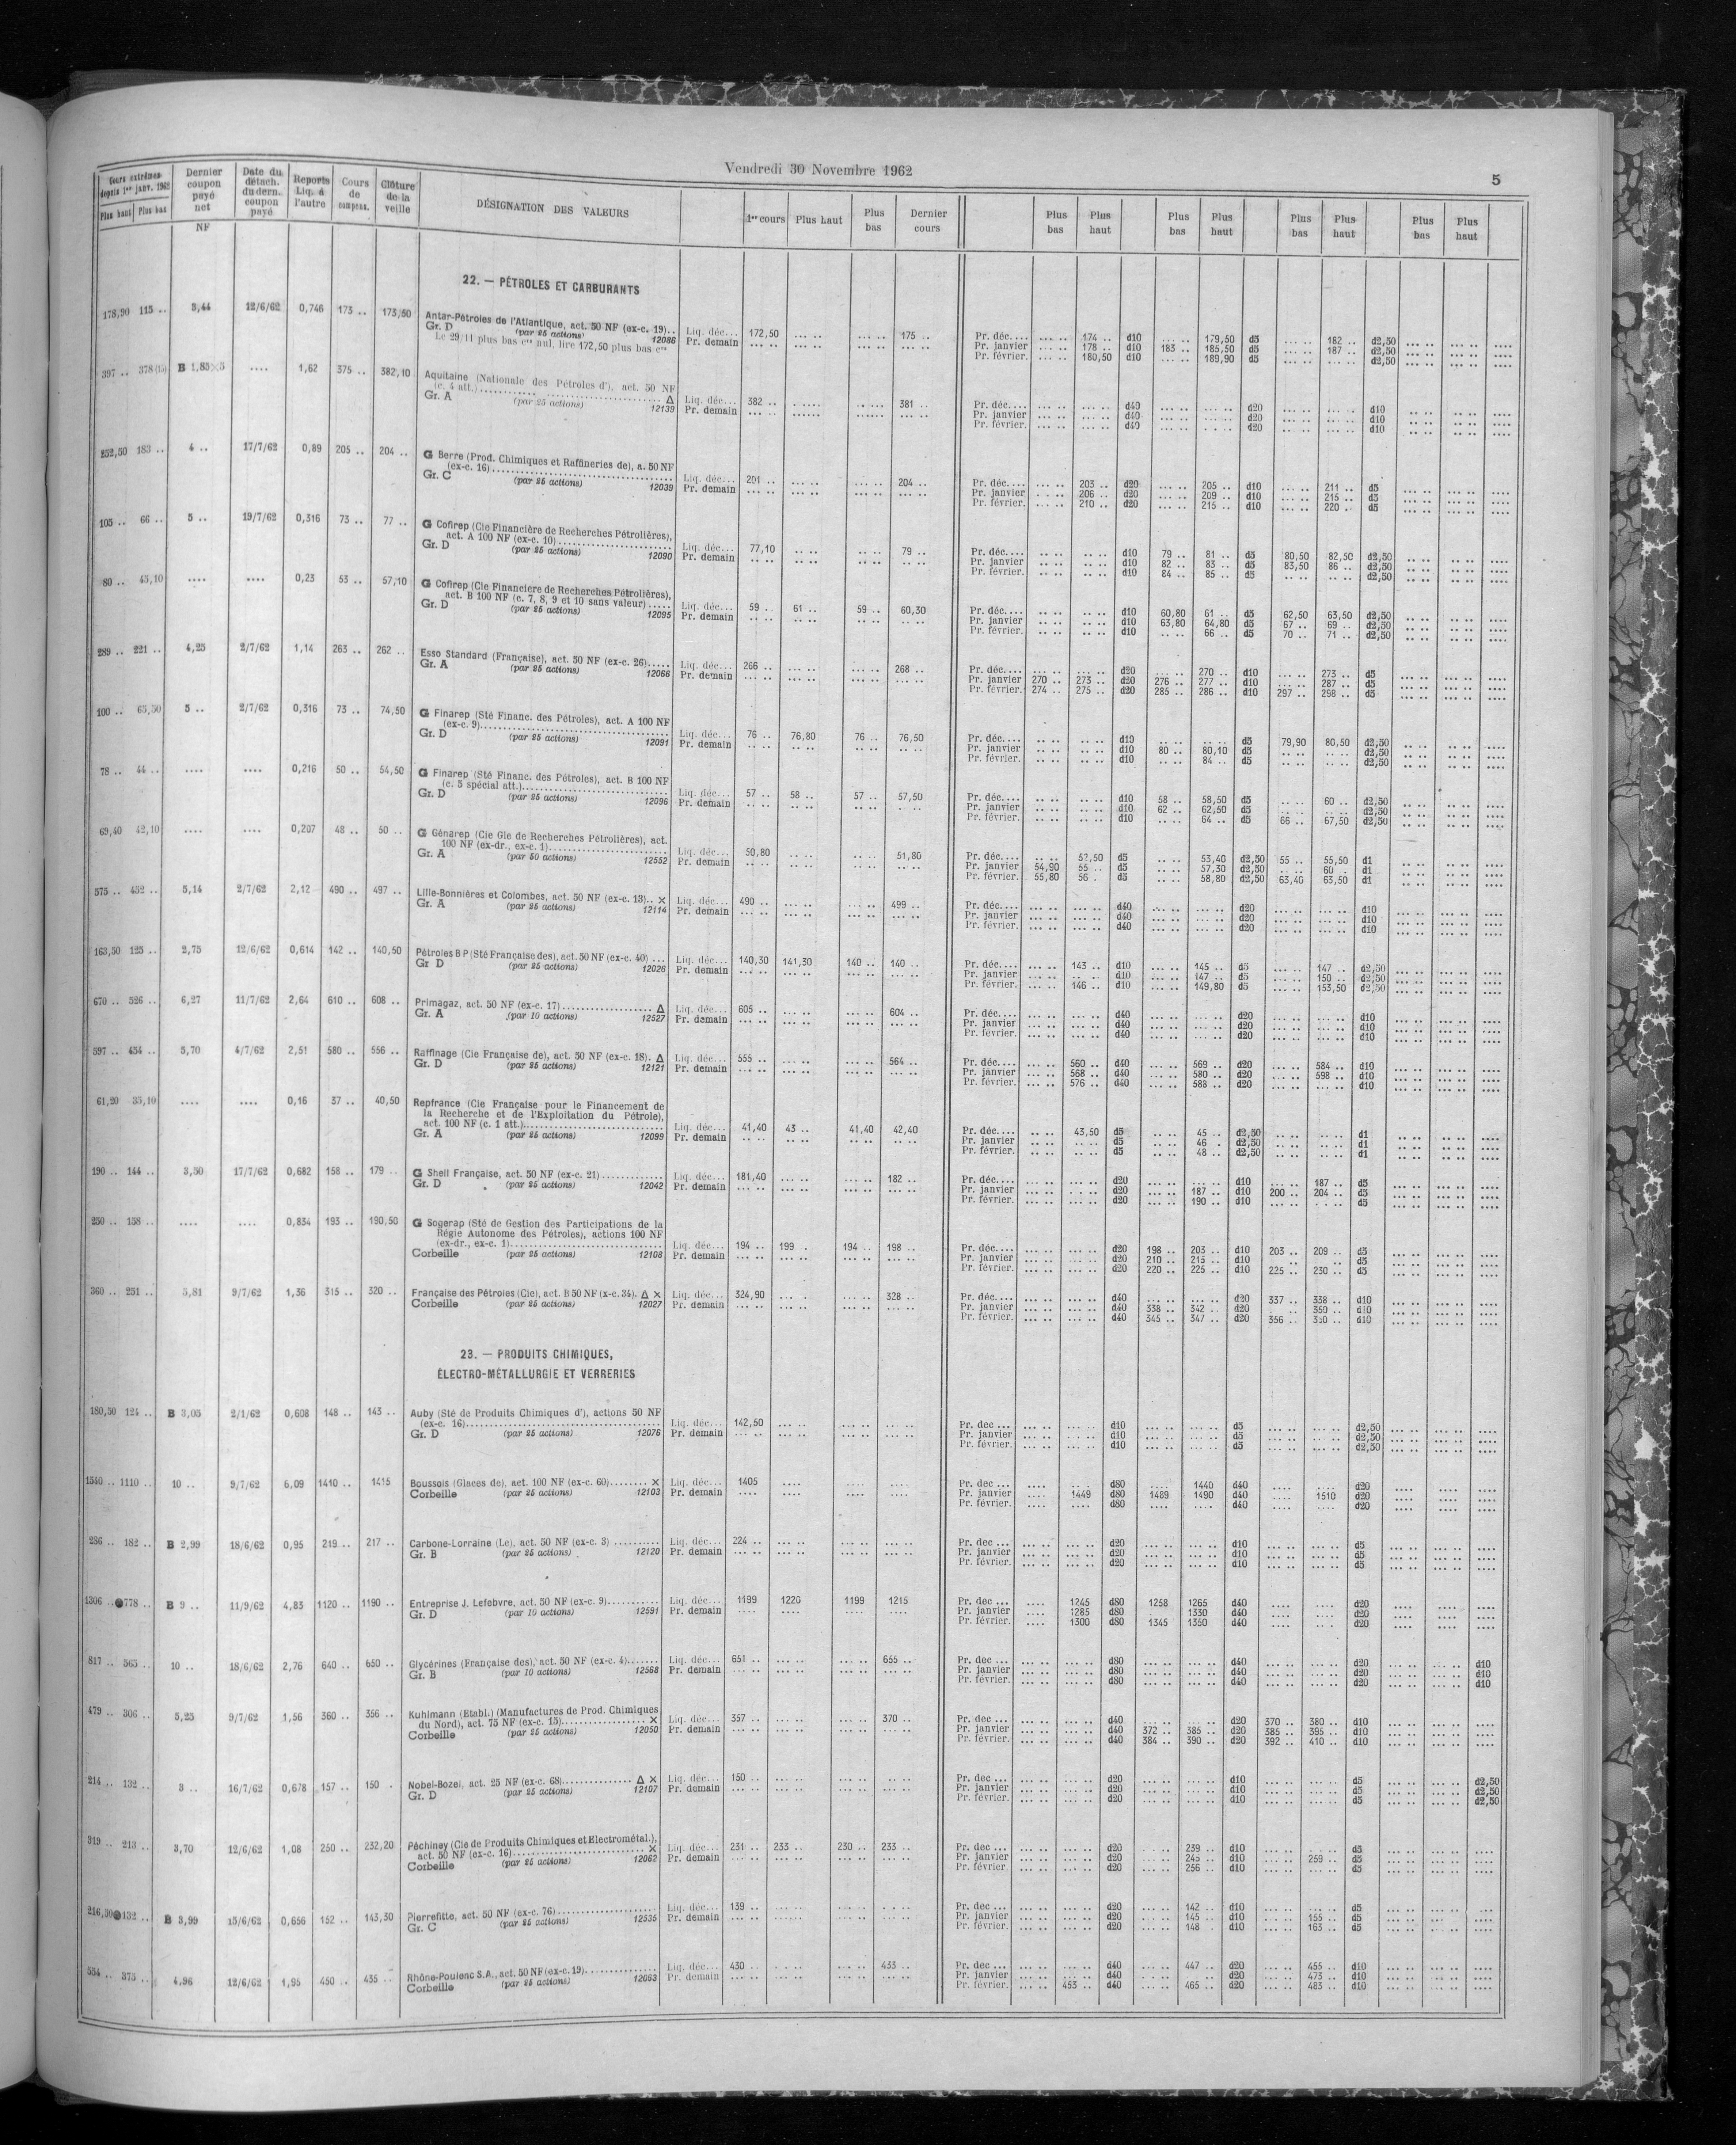 Vendredi 30 Novembre 1962
5
Cours extrêmes depuis 1er janv. 1962 Plus haut Plus bas | Dernier coupon payé net NF | Date du détach. du dern. coupon payé | Reports Liq. à l'autre | Cours de compens. | Clôture de la veille | DÉSIGNATION DES VALEURS | 1er cours | Plus haut | Plus bas | Dernier cours | Plus bas | Plus haut | Plus bas | Plus haut | Plus bas | Plus haut | Plus bas | Plus haut
22. — PÉTROLES ET CARBURANTS
178,90 115 .. 3,44 12/6/62 0,746 173 .. 173,50 Antar-Pétroles de l'Atlantique, act. 50 NF (ex-c. 19)..
Gr. D (par 25 actions) 12086 Liq. déc... 172,50 175 .. Pr. déc.... 174 .. d10 179,50 d5 182 .. d2,50
Le 29/11 plus bas crs nul, lire 172,50 plus bas crs Pr. demain Pr. janvier 178 .. d10 183 .. 185,50 d5 187 .. d2,50
Pr. février. 180,50 d10 189,90 d5 d2,50
397 .. 378(15) B 1,85 .... 1,62 375 .. 382,10 Aquitaine (Nationale des Pétroles d'), act. 50 NF
(c. 4 att.) Δ Liq. déc... 382 .. 381 .. Pr. déc.... d40 d20 d10
Gr. A (par 25 actions) 12139 Pr. demain Pr. janvier d40 d20 d10
Pr. février. d40 d20 d10
252,50 183 .. 4 .. 17/7/62 0,89 205 .. 204 .. G Berre (Prod. Chimiques et Raffineries de), a. 50 NF
(ex-c. 16) Liq. déc... 201 .. 204 .. Pr. déc.... 203 .. d20 205 .. d10 211 .. d5
Gr. C (par 25 actions) 12039 Pr. demain Pr. janvier 206 .. d20 209 .. d10 215 .. d5
Pr. février. 210 .. d20 215 .. d10 220 .. d5
105 .. 66 .. 5 .. 19/7/62 0,316 73 .. 77 .. G Cofirep (Cie Financière de Recherches Pétrolières),
act. A 100 NF (ex-c. 10) Liq. déc... 77,10 79 .. Pr. déc.... d10 79 .. 81 .. d5 80,50 82,50 d2,50
Gr. D (par 25 actions) 12090 Pr. demain Pr. janvier d10 82 .. 83 .. d5 83,50 86 .. d2,50
Pr. février. d10 84 .. 85 .. d5 d2,50
80 .. 45,10 .... .... 0,23 53 .. 57,10 G Cofirep (Cie Financière de Recherches Pétrolières),
act. B 100 NF (c. 7, 8, 9 et 10 sans valeur) Liq. déc... 59 .. 61 .. 59 .. 60,30 Pr. déc.... d10 60,80 61 .. d5 62,50 63,50 d2,50
Gr. D (par 25 actions) 12095 Pr. demain Pr. janvier d10 63,80 64,80 d5 67 .. 69 .. d2,50
Pr. février. d10 66 .. d5 70 .. 71 .. d2,50
289 .. 221 .. 4,25 2/7/62 1,14 263 .. 262 .. Esso Standard (Française), act. 50 NF (ex-c. 26) Liq. déc... 266 .. 268 .. Pr. déc.... d20 270 .. d10 273 .. d5
Gr. A (par 25 actions) 12066 Pr. demain Pr. janvier 270 .. 273 .. d20 276 .. 277 .. d10 287 .. d5
Pr. février. 274 .. 275 .. d20 285 .. 286 .. d10 297 .. 298 .. d5
100 .. 65,50 5 .. 2/7/62 0,316 73 .. 74,50 G Finarep (Sté Financ. des Pétroles), act. A 100 NF
(ex-c. 9) Liq. déc... 76 .. 76,80 76 .. 76,50 Pr. déc.... d10 d5 79,90 80,50 d2,50
Gr. D (par 25 actions) 12091 Pr. demain Pr. janvier d10 80 .. 80,10 d5 d2,50
Pr. février. d10 84 .. d5 d2,50
78 .. 44 .. .... .... 0,216 50 .. 54,50 G Finarep (Sté Financ. des Pétroles), act. B 100 NF
(c. 5 spécial att.) Liq. déc... 57 .. 58 .. 57 .. 57,50 Pr. déc.... d10 58 .. 58,50 d5 60 .. d2,50
Gr. D (par 25 actions) 12096 Pr. demain Pr. janvier d10 62 .. 62,50 d5 d2,50
Pr. février. d10 64 .. d5 66 .. 67,50 d2,50
69,40 42,10 .... .... 0,207 48 .. 50 .. G Génarep (Cie Gle de Recherches Pétrolières), act.
100 NF (ex-dr., ex-c. 1) Liq. déc... 50,80 51,80 Pr. déc.... 52,50 d5 53,40 d2,50 55 .. 55,50 d1
Gr. A (par 50 actions) 12552 Pr. demain Pr. janvier 54,90 55 .. d5 57,30 d2,50 60 . d1
Pr. février. 55,80 56 . d5 58,80 d2,50 63,40 63,50 d1
575 .. 452 .. 5,14 2/7/62 2,12 490 .. 497 .. Lille-Bonnières et Colombes, act. 50 NF (ex-c. 13).. × Liq. déc... 490 .. 499 .. Pr. déc.... d40 d20 d10
Gr. A (par 25 actions) 12114 Pr. demain Pr. janvier d40 d20 d10
Pr. février. d40 d20 d10
163,50 125 .. 2,75 12/6/62 0,614 142 .. 140,50 Pétroles B P (Sté Française des), act. 50 NF (ex-c. 40) ... Liq. déc... 140,30 141,30 140 .. 140 .. Pr. déc.... 143 .. d10 145 .. d5 147 .. d2,50
Gr D (par 25 actions) 12026 Pr. demain Pr. janvier d10 147 .. d5 150 .. d2,50
Pr. février. 146 .. d10 149,80 d5 153,50 d2,50
670 .. 526 .. 6,27 11/7/62 2,64 610 .. 608 .. Primagaz, act. 50 NF (ex-c. 17) Δ Liq. déc... 605 .. 604 .. Pr. déc.... d40 d20 d10
Gr. A (par 10 actions) 12527 Pr. demain Pr. janvier d40 d20 d10
Pr. février. d40 d20 d10
597 .. 454 .. 5,70 4/7/62 2,51 580 .. 556 .. Raffinage (Cie Française de), act. 50 NF (ex-c. 18). Δ Liq. déc... 555 .. 564 .. Pr. déc.... 560 .. d40 569 .. d20 584 .. d10
Gr. D (par 25 actions) 12121 Pr. demain Pr. janvier 568 .. d40 580 .. d20 598 .. d10
Pr. février. 576 .. d40 588 .. d20 d10
61,20 35,10 .... .... 0,16 37 .. 40,50 Repfrance (Cie Française pour le Financement de
la Recherche et de l'Exploitation du Pétrole),
act. 100 NF (c. 1 att.) Liq. déc... 41,40 43 .. 41,40 42,40 Pr. déc.... 43,50 d5 45 .. d2,50 d1
Gr. A (par 25 actions) 12099 Pr. demain Pr. janvier d5 46 . d2,50 d1
Pr. février. d5 48 .. d2,50 d1
190 .. 144 .. 3,50 17/7/62 0,682 158 .. 179 .. G Shell Française, act. 50 NF (ex-c. 21) Liq. déc... 181,40 182 .. Pr. déc.... d20 d10 187 .. d5
Gr. D (par 25 actions) 12042 Pr. demain Pr. janvier d20 187 .. d10 200 .. 204 .. d5
Pr. février. d20 190 .. d10 d5
250 .. 158 .. .... .... 0,834 193 .. 190,50 G Sogerap (Sté de Gestion des Participations de la
Régie Autonome des Pétroles), actions 100 NF
(ex-dr., ex-c. 1) Liq. déc... 194 .. 199 . 194 .. 198 .. Pr. déc.... d20 198 .. 203 .. d10 203 .. 209 .. d5
Corbeille (par 25 actions) 12108 Pr. demain Pr. janvier d20 210 .. 215 .. d10 d5
Pr. février. d20 220 .. 225 .. d10 225 .. 230 .. d5
360 .. 251 .. 5,81 9/7/62 1,36 315 .. 320 .. Française des Pétroles (Cie), act. B 50 NF (x-c. 34). Δ × Liq. déc... 324,90 328 .. Pr. déc.... d40 d20 337 .. 338 .. d10
Corbeille (par 25 actions) 12027 Pr. demain Pr. janvier d40 338 .. 342 .. d20 350 .. d10
Pr. février. d40 345 .. 347 .. d20 356 .. d10
23. — PRODUITS CHIMIQUES,
ÉLECTRO-MÉTALLURGIE ET VERRERIES
180,50 124 .. B 3,05 2/1/62 0,608 148 .. 143 .. Auby (Sté de Produits Chimiques d'), actions 50 NF
(ex-c. 16) Liq. déc... 142,50 Pr. dec ... d10 d5 d2,50
Gr. D (par 25 actions) 12076 Pr. demain Pr. janvier d10 d5 d2,50
Pr. février. d10 d5 d2,50
1540 .. 1110 .. 10 .. 9/7/62 6,09 1410 .. 1415 Boussois (Glaces de), act. 100 NF (ex-c. 60) × Liq. déc... 1405 Pr. dec ... d80 1440 d40 d20
Corbeille (par 25 actions) 12103 Pr. demain Pr. janvier 1449 d80 1489 1490 d40 1510 d20
Pr. février. d80 d40 d20
286 .. 182 .. B 2,99 18/6/62 0,95 219 .. 217 .. Carbone-Lorraine (Le), act. 50 NF (ex-c. 3) Liq. déc... 224 .. Pr. dec ... d20 d10 d5
Gr. B (par 25 actions) 12120 Pr. demain Pr. janvier d20 d10 d5
Pr. février. d20 d10 d5
1306 .. ●778 .. B 9 .. 11/9/62 4,83 1120 .. 1190 .. Entreprise J. Lefebvre, act. 50 NF (ex-c. 9) Liq. déc... 1199 1220 1199 1215 Pr. dec ... 1245 d80 1258 1265 d40 d20
Gr. D (par 10 actions) 12591 Pr. demain Pr. janvier 1285 d80 1330 d40 d20
Pr. février. 1300 d80 1345 1350 d40 d20
817 .. 565 .. 10 .. 18/6/62 2,76 640 .. 650 .. Glycérines (Française des), act. 50 NF (ex-c. 4) Liq. déc... 651 .. 655 .. Pr. dec ... d80 d40 d20 d10
Gr. B (par 10 actions) 12568 Pr. demain Pr. janvier d80 d40 d20 d10
Pr. février. d80 d40 d20 d10
479 .. 306 .. 5,25 9/7/62 1,56 360 .. 356 .. Kuhlmann (Etabl.) (Manufactures de Prod. Chimiques
du Nord), act. 75 NF (ex-c. 15) × Liq. déc... 357 .. 370 .. Pr. dec ... d40 d20 370 .. 380 .. d10
Corbeille (par 25 actions) 12050 Pr. demain Pr. janvier d40 372 .. 385 .. d20 385 .. 395 .. d10
Pr. février. d40 384 .. 390 .. d20 392 .. 410 .. d10
214 .. 132 .. 3 .. 16/7/62 0,678 157 .. 150 . Nobel-Bozel, act. 25 NF (ex-c. 68) Δ × Liq. déc... 150 .. Pr. dec ... d20 d10 d5 d2,50
Gr. D (par 25 actions) 12107 Pr. demain Pr. janvier d20 d10 d5 d2,50
Pr. février. d20 d10 d5 d2,50
319 .. 213 .. 3,70 12/6/62 1,08 250 .. 232,20 Péchiney (Cie de Produits Chimiques et Electrométal.),
act. 50 NF (ex-c. 16) × Liq. déc... 231 .. 233 .. 230 .. 233 .. Pr. dec ... d20 239 .. d10 d5
Corbeille (par 25 actions) 12062 Pr. demain Pr. janvier d20 245 .. d10 259 .. d5
Pr. février. d20 256 .. d10 d5
216,50 ●132 .. B 3,99 15/6/62 0,656 152 .. 143,30 Pierrefitte, act. 50 NF (ex-c. 76) Liq. déc... 139 .. Pr. dec ... d20 142 .. d10 d5
Gr. C (par 25 actions) 12535 Pr. demain Pr. janvier d20 145 .. d10 155 .. d5
Pr. février. d20 148 . d10 163 .. d5
554 .. 375 .. 4,96 12/6/62 1,95 450 .. 435 .. Rhône-Poulenc S.A., act. 50 NF (ex-c. 19) Liq. déc... 430 .. 433 .. Pr. dec ... d40 447 .. d20 455 .. d10
Corbeille (par 25 actions) 12053 Pr. demain Pr. janvier d40 d20 473 .. d10
Pr. février. 453 .. d40 465 .. d20 483 .. d10